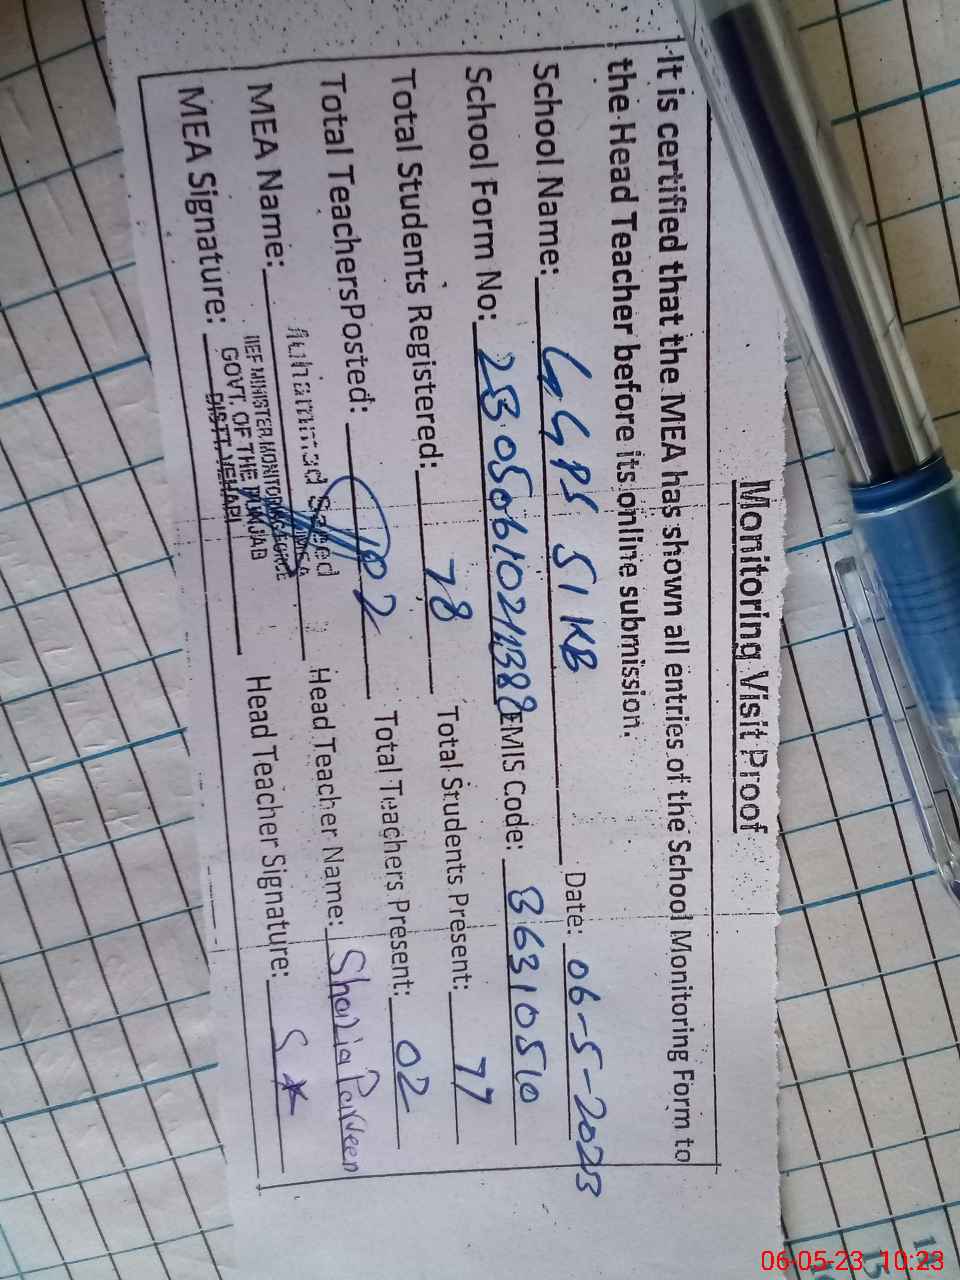 Monitoring Visit Proof
It is certified that the MEA has shown all entries of the School Monitoring Form to
the Head Teacher before its online submission.
School Name: GGPS 51 KB Date: 06-5-2023
School Form No: EMIS Code: 3631050
Total Students Registered: 78 Total Students Present: 77
Total TeachersPosted: 02 Total Teachers Present: 02
MEA Name: Muhammad Saeed Head Teacher Name: Shazia Parveen
MEA
IEF MINISTER MONITORING FORCE
GOVT. OF THE PUNJAB
DISTT. VEHARI
MEA Signature: Head Teacher Signature:
15
06-05-23 10:23